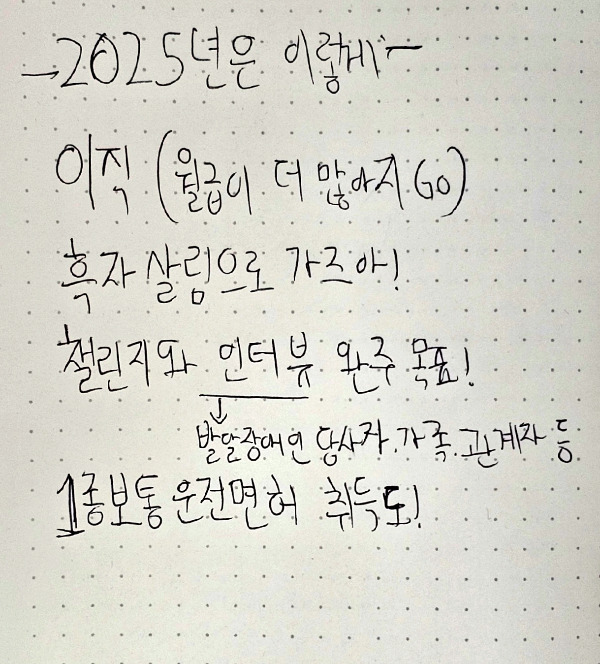 →2025년은 이렇게~
이직 (월급이 더 많아지 GO)
흑자 살림으로 가즈아!
챌린지와 인터뷰 완주 목표!
↓
발달장애인 당사자.가족.관계자 등
1종보통운전면허 취득도!